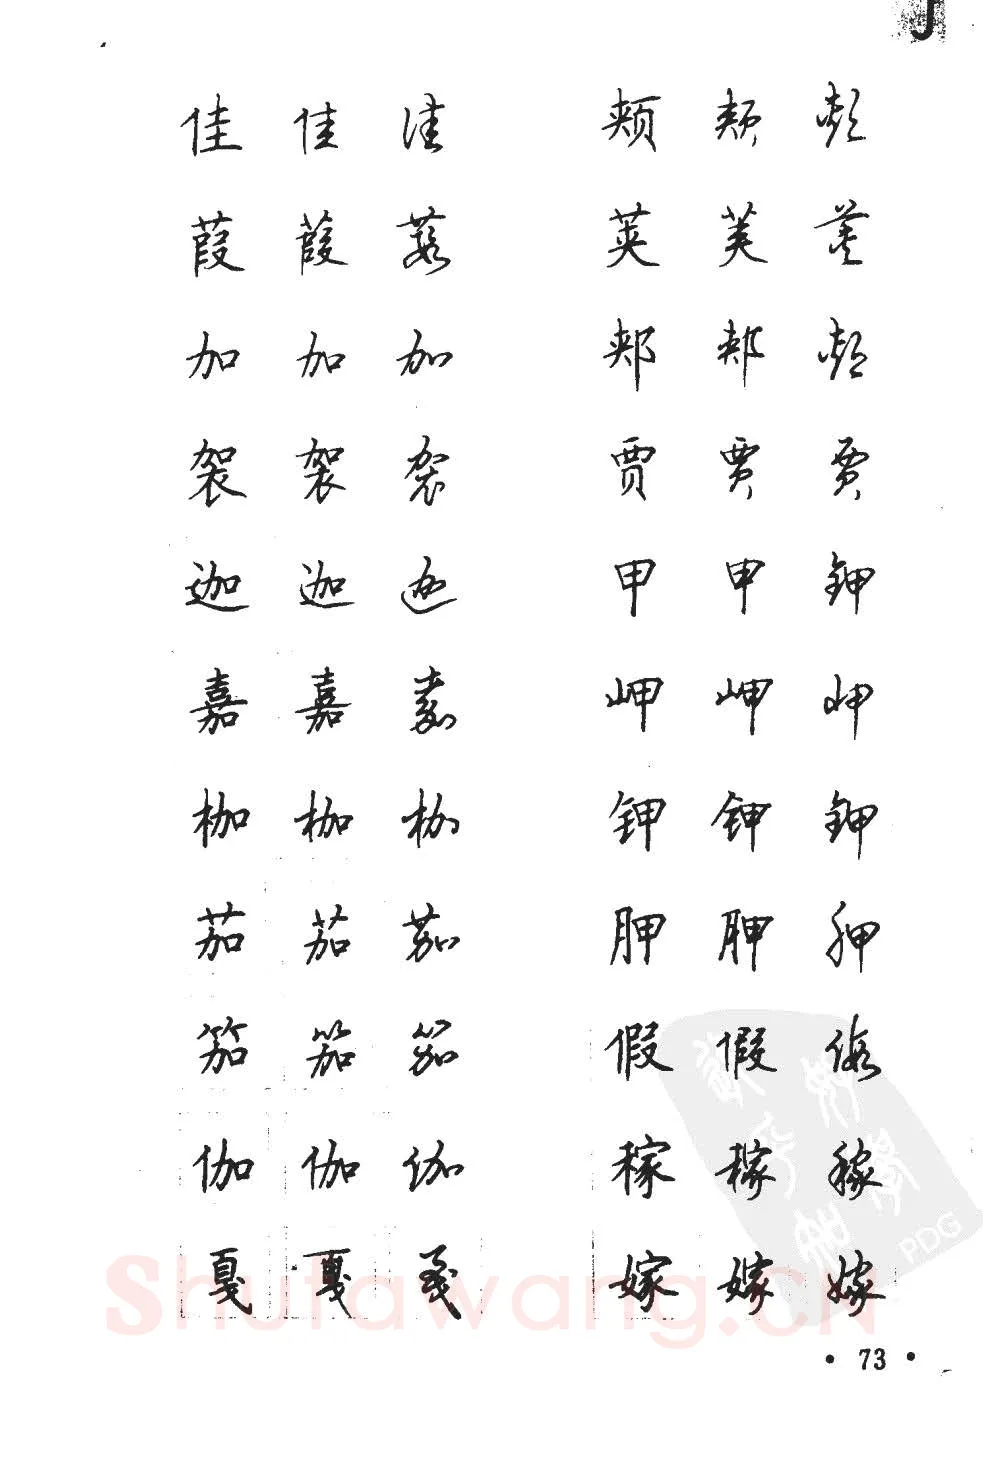 J
佳 佳 佳 颊 颊 颊
葭 葭 葭 荚 荚 荚
加 加 加 郏 郏 郏
袈 袈 袈 贾 贾 贾
迦 迦 迦 甲 甲 钾
嘉 嘉 嘉 岬 岬 岬
枷 枷 枷 钾 钾 钾
茄 茄 茄 胛 胛 胛
笳 笳 笳 假 假 假
伽 伽 伽 稼 稼 稼
戛 戛 戛 嫁 嫁 嫁
Shufawang.CN
PDG
• 73 •